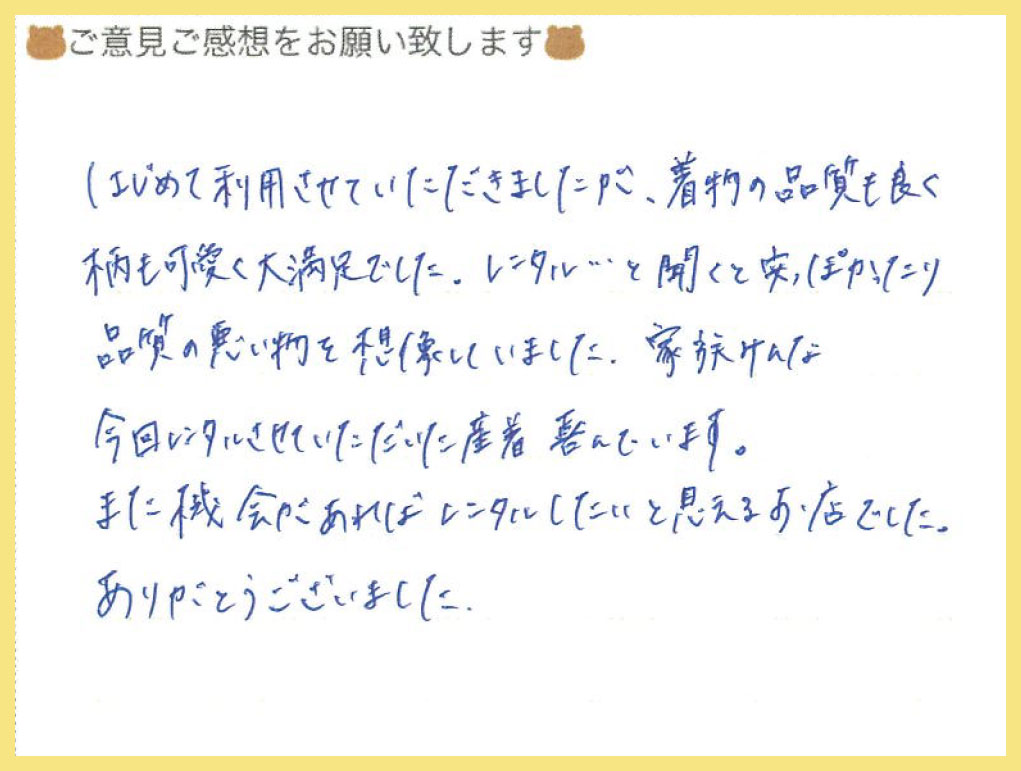 ご意見ご感想をお願い致します
はじめて利用させていただきましたが、着物の品質も良く
柄も可愛く大満足でした。レンタル…と聞くと安っぽかったり
品質の悪い物を想像していました。家族みんな
今回レンタルさせていただいた産着喜んでいます。
また機会があればレンタルしたいと思えるお店でした。
ありがとうございました.